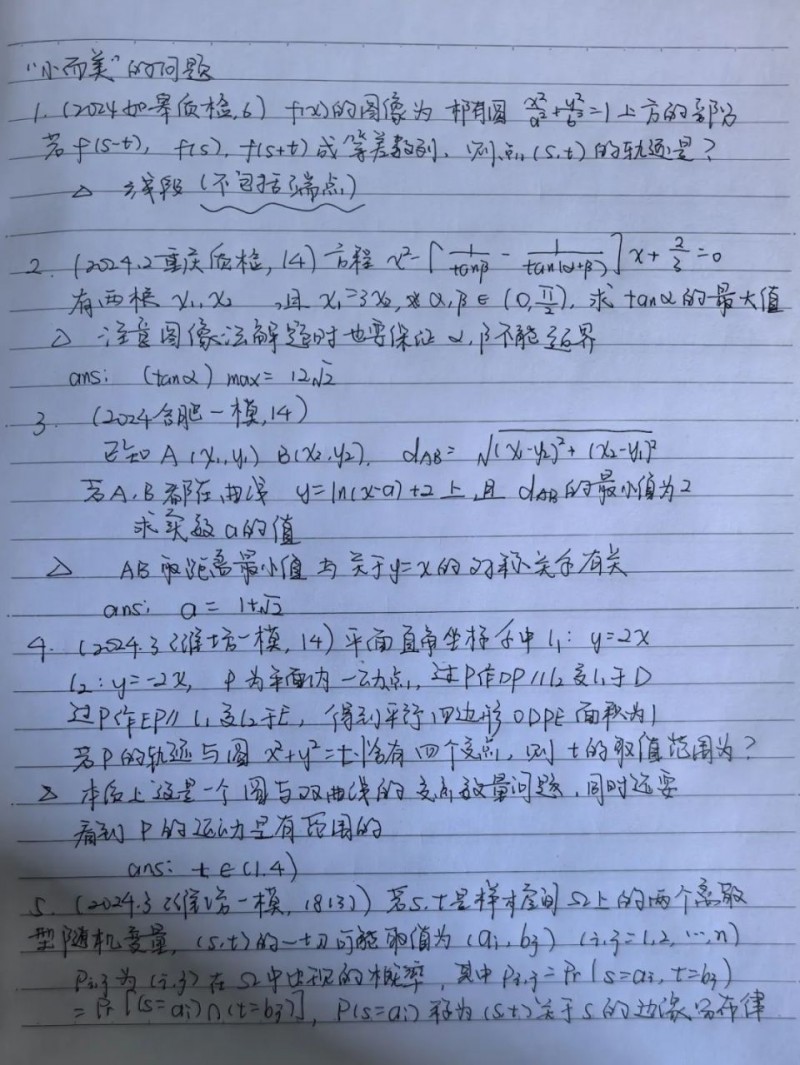 “小而美”的问题
1. (2024如皋质检,6) f(x)的图像为 椭圆 x²/a²+y²/b²=1上方的部分
若f(s-t), f(s), f(s+t)成等差数列, 则点(s,t)的轨迹是?
△ 线段(不包括端点)
2. (2024.2重庆质检,14) 方程 x²-[1/tanβ - 1/tan(α+β)]x+2/3=0
有两根 x₁,x₂ ,且 x₁=3x₂, α,β∈(0,π/2), 求 tanα的最大值
△ 注意图像法解题时也要保证 α,β不能越界
ans: (tanα) max= 12√2
3. (2024合肥一模,14)
已知 A(x₁,y₁) B(x₂,y₂), dAB= √(x₁-y₂)²+(x₂-y₁)²
若A,B都在曲线 y=ln(x-a)+2上,且 dAB的最小值为2
求实数a的值
△ AB 取距离最小值与关于y=x的对称关系有关
ans: a = 1+√2
4. (2024.3潍坊一模,14)平面直角坐标系中 l₁: y=2x
l₂:y=-2x, P为平面内一动点, 过P作DP//l₂交l₁于D
过P作EP// l₁交l₂于E, 得到平行四边形ODPE面积为1
若P的轨迹与圆 x²+y²=t恰有四个交点, 则 t的取值范围为?
△ 本质上这是一个圆与双曲线的交点数量问题, 同时还要
看到 P的运动是有范围的
ans: t∈(1.4)
5. (2024.3潍坊一模, 18(3)) 若s,t是样本空间Ω上的两个离散
型随机变量, (s,t)的一切可能取值为(ai,bj) (i,j=1,2,…,n)
Pi,j为(i,j)在Ω中出现的概率, 其中 Pi,j=Pr(s=ai, t=bj)
=Pr[(s=ai)∩(t=bj)], P(s=ai)称为(s,t)关于s的边缘分布律